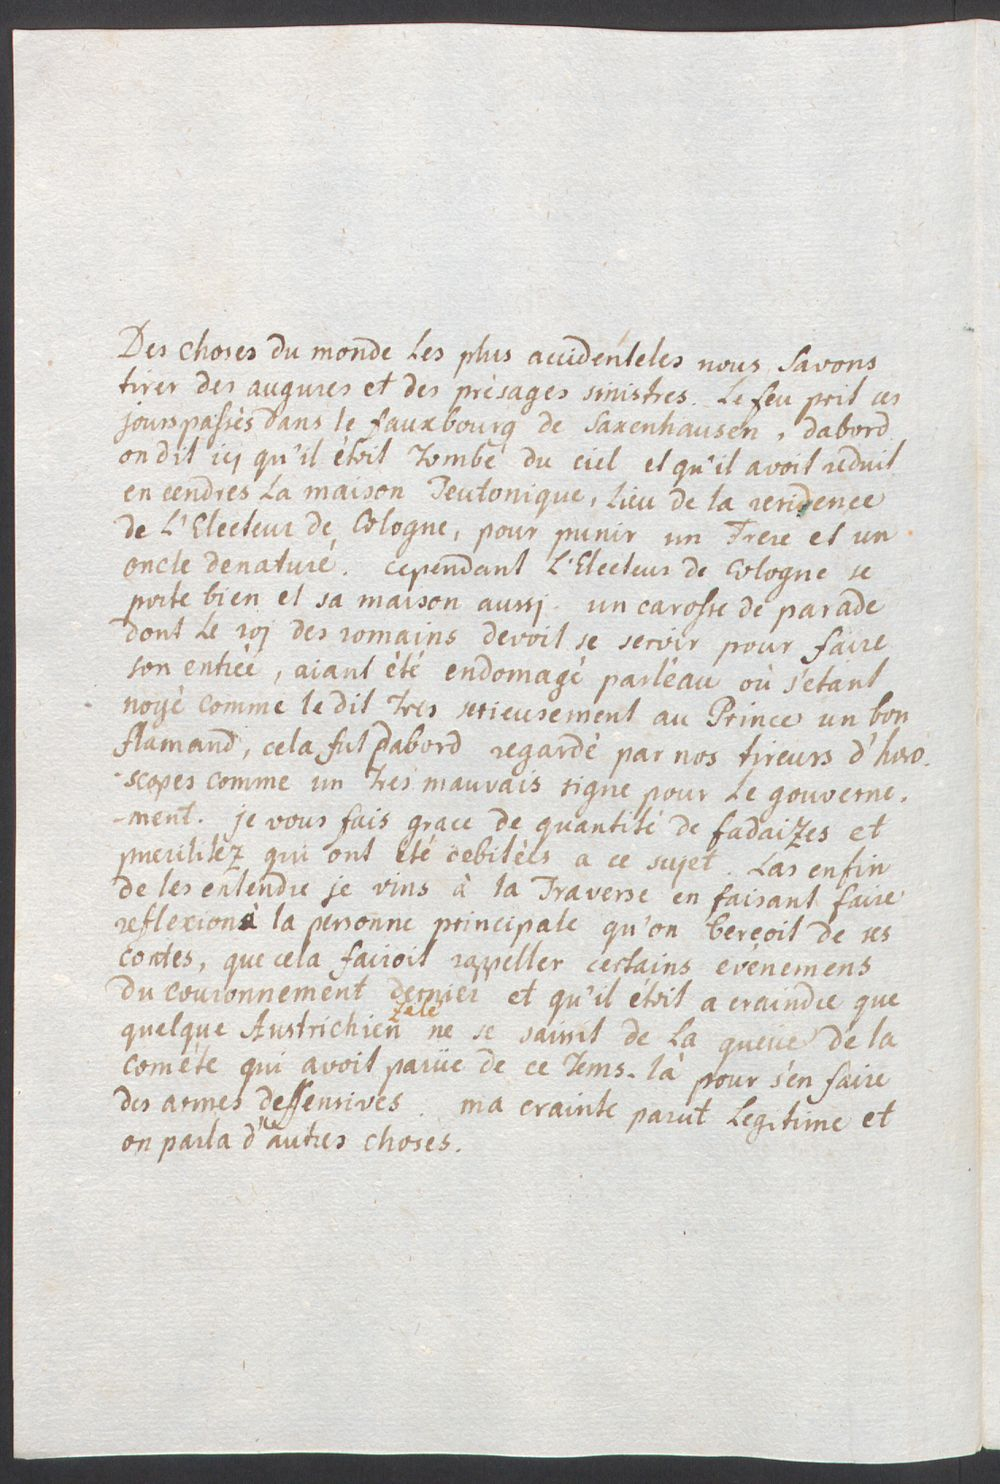 Des choses du monde Les plus accidenteles nous Savons
tirer des augures et des présages sinistres. Le feu prit ces
jours passés dans le fauxbourg de Saxenhausen, dabord
on dit icy qu'il étoit Tombé du ciel et qu'il avoit reduit
en cendres La maison Teutonique, Lieu de la residence
de L'Electeur de Cologne, pour punir un Frere et un
oncle denaturé. Cependant L'Electeur de Cologne se
porte bien et sa maison aussj. un carosse de parade
dont Le roj des romains devoit se servir pour faire
son entrée, aiant été endomagé par l'eau où s'etant
noyé comme le dit Tres serieusement au Prince un bon
flamand, cela fut Dabord regardé par nos tireurs d'horo-
-scopes comme un Tres mauvais signe pour Le gouverne-
-ment. je vous fais grace de quantité de fadaizes et
puerilitéz qui ont été debitées a ce sujet. Las enfin
de les entendre je vins à la Traverse en faisant faire
reflexion à la personne principale qu'on berçoit de ses
contes, que cela fairoit rappeller certains evénemens
du couronnement dernier et qu'il étoit a craindre que
quelque Austrichien zelé ne se saisit de La queüe de la
comête qui avoit parüe de ce Tems-là pour s'en faire
des armes deffensives. ma crainte parut Legitime et
on parla d'autres choses.